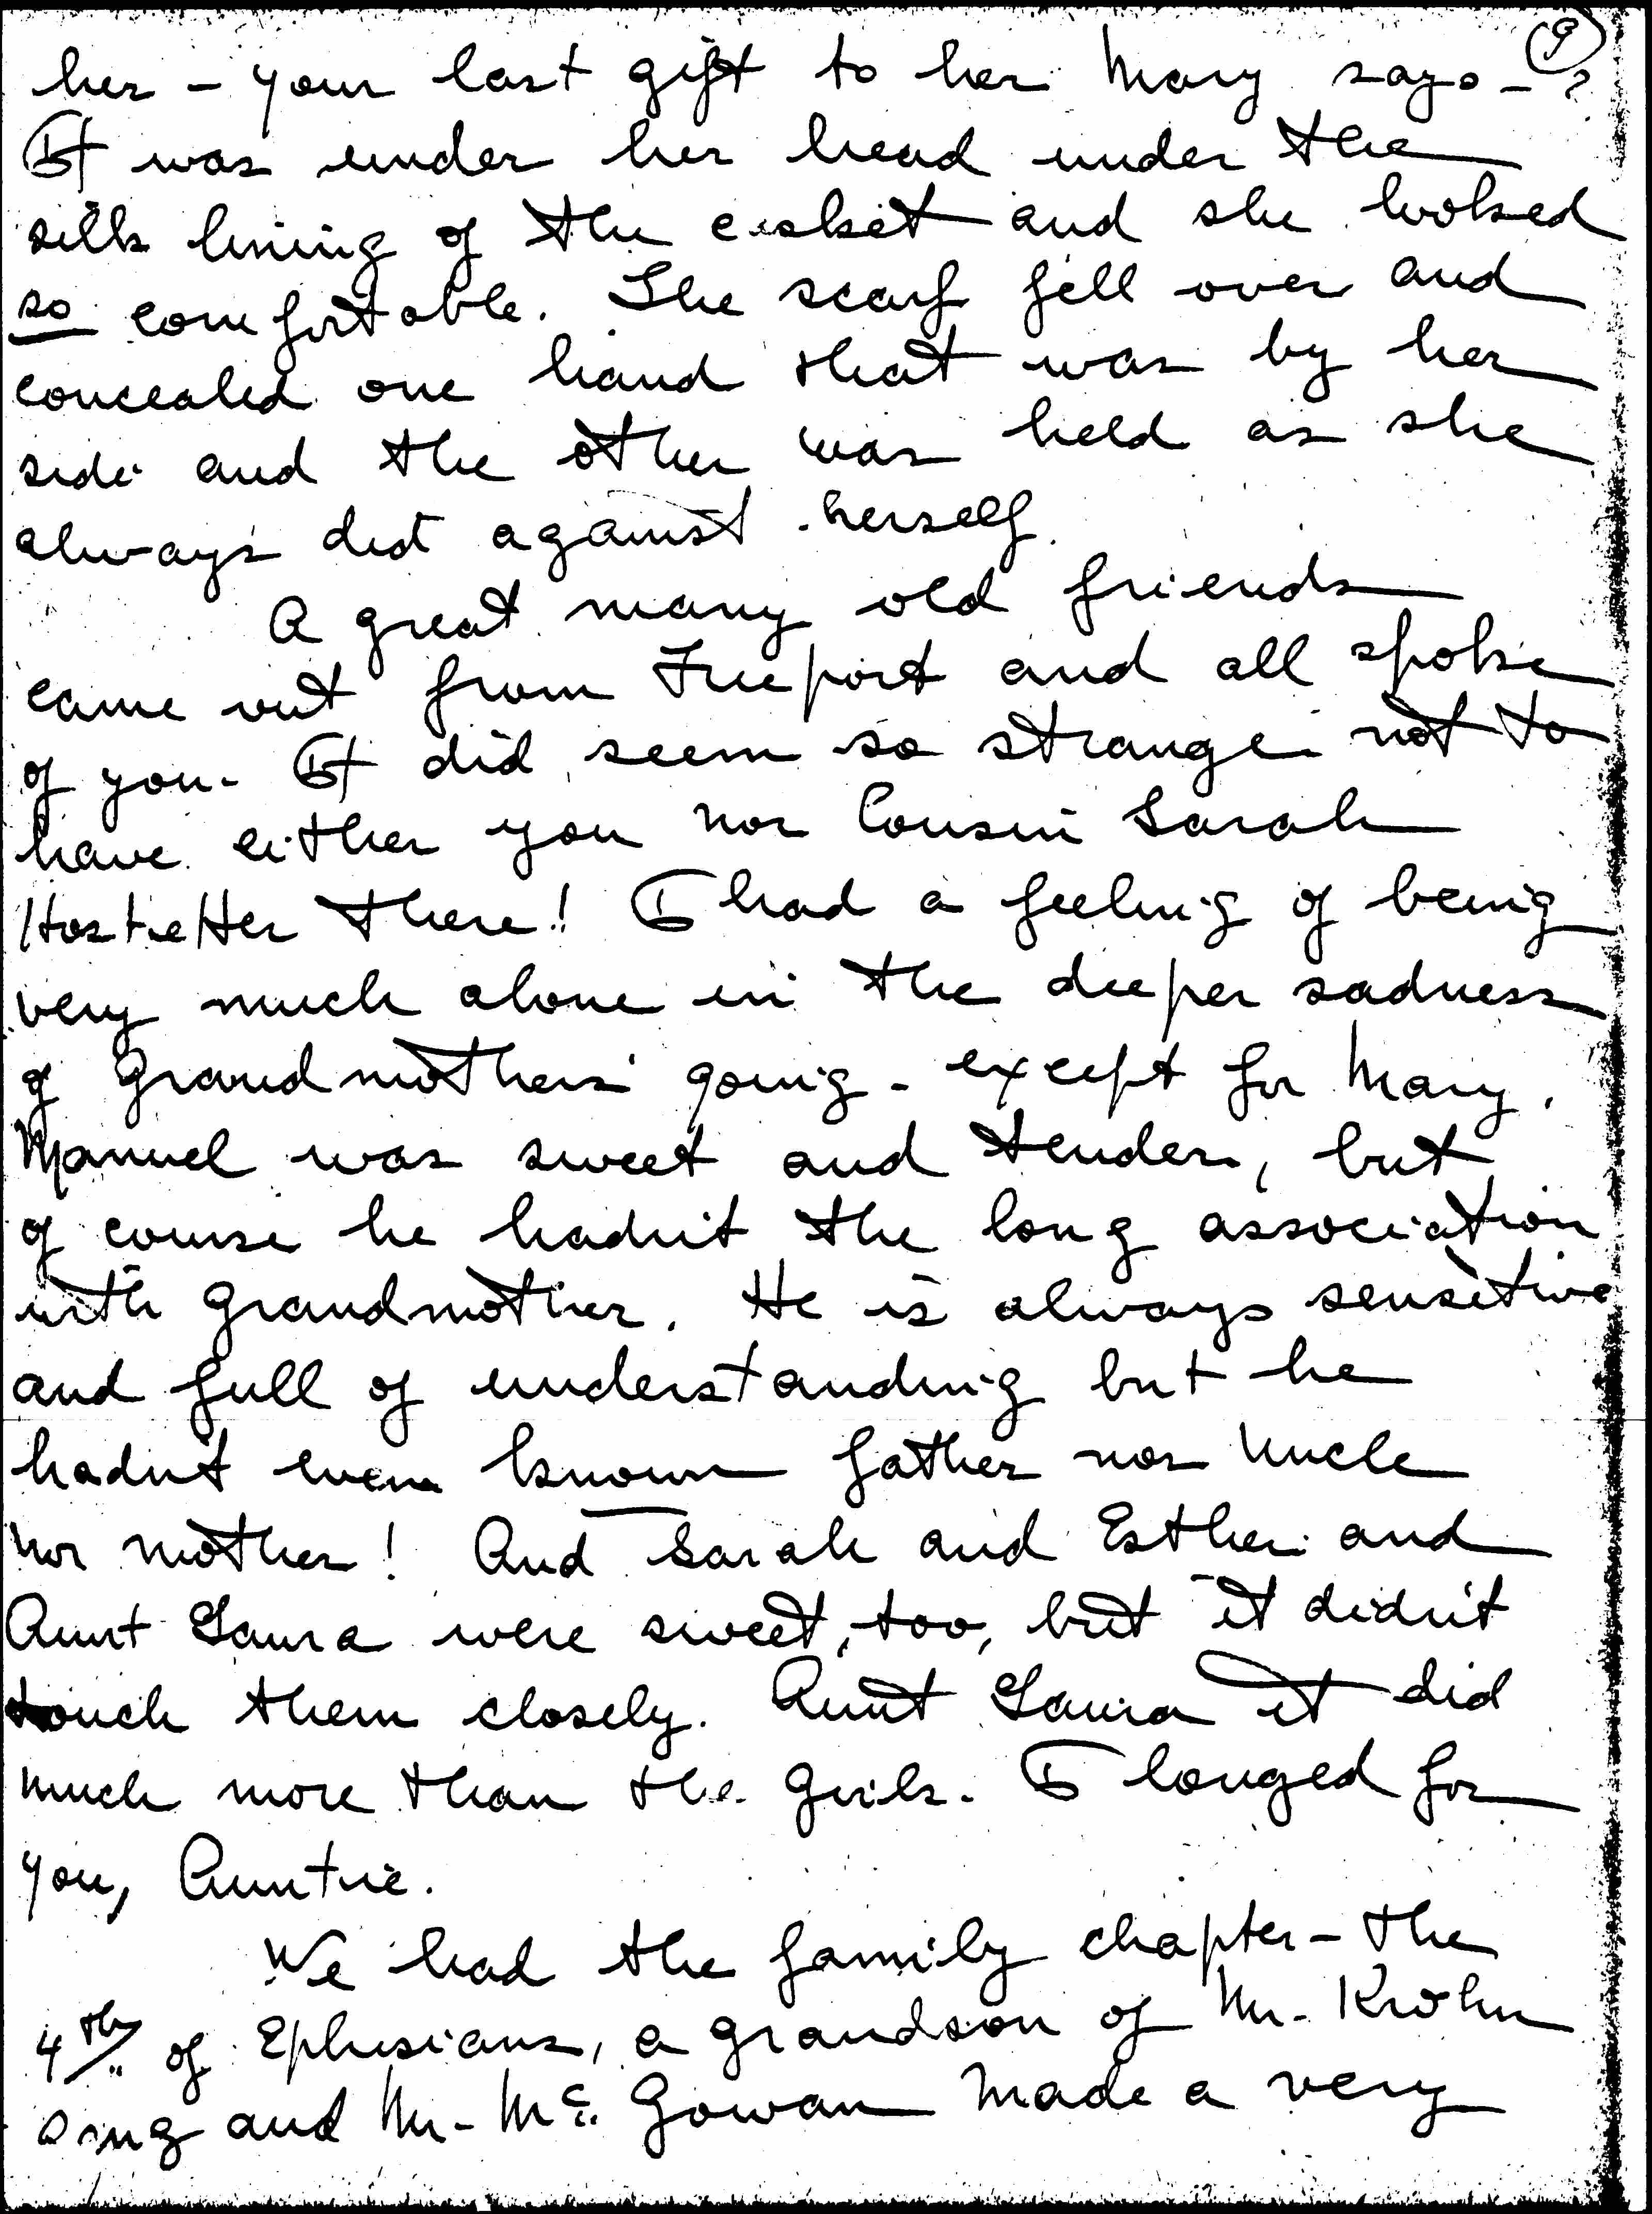 9
her – your last gift to her Mary says – ?
It was under her head under the
silk lining of the casket and she looked
so comfortable. The scarf fell over and
concealed one hand that was by her
side and the other was held as she
always did against herself.
A great many old friends
came out from Freeport and all spoke
of you. It did seem so strange not to
have either you nor Cousin Sarah
Hostetter there! I had a feeling of being
very much alone in the deeper sadness
of Grandmother's going – except for Mary.
Manuel was sweet and tender, but
of course he hadn't the long association
with Grandmother. He is always sensitive
and full of understanding but he
hadn't even known father nor Uncle
nor mother! And Sarah and Esther and
Aunt Laura were sweet, too, but it didn't
touch them closely. Aunt Laura it did
much more than the girls. I longed for
you, Auntie.
We had the family chapter – the
4th of Ephesians, a grandson of Mr. Krohn
sang and Mr. Mc Gowan made a very